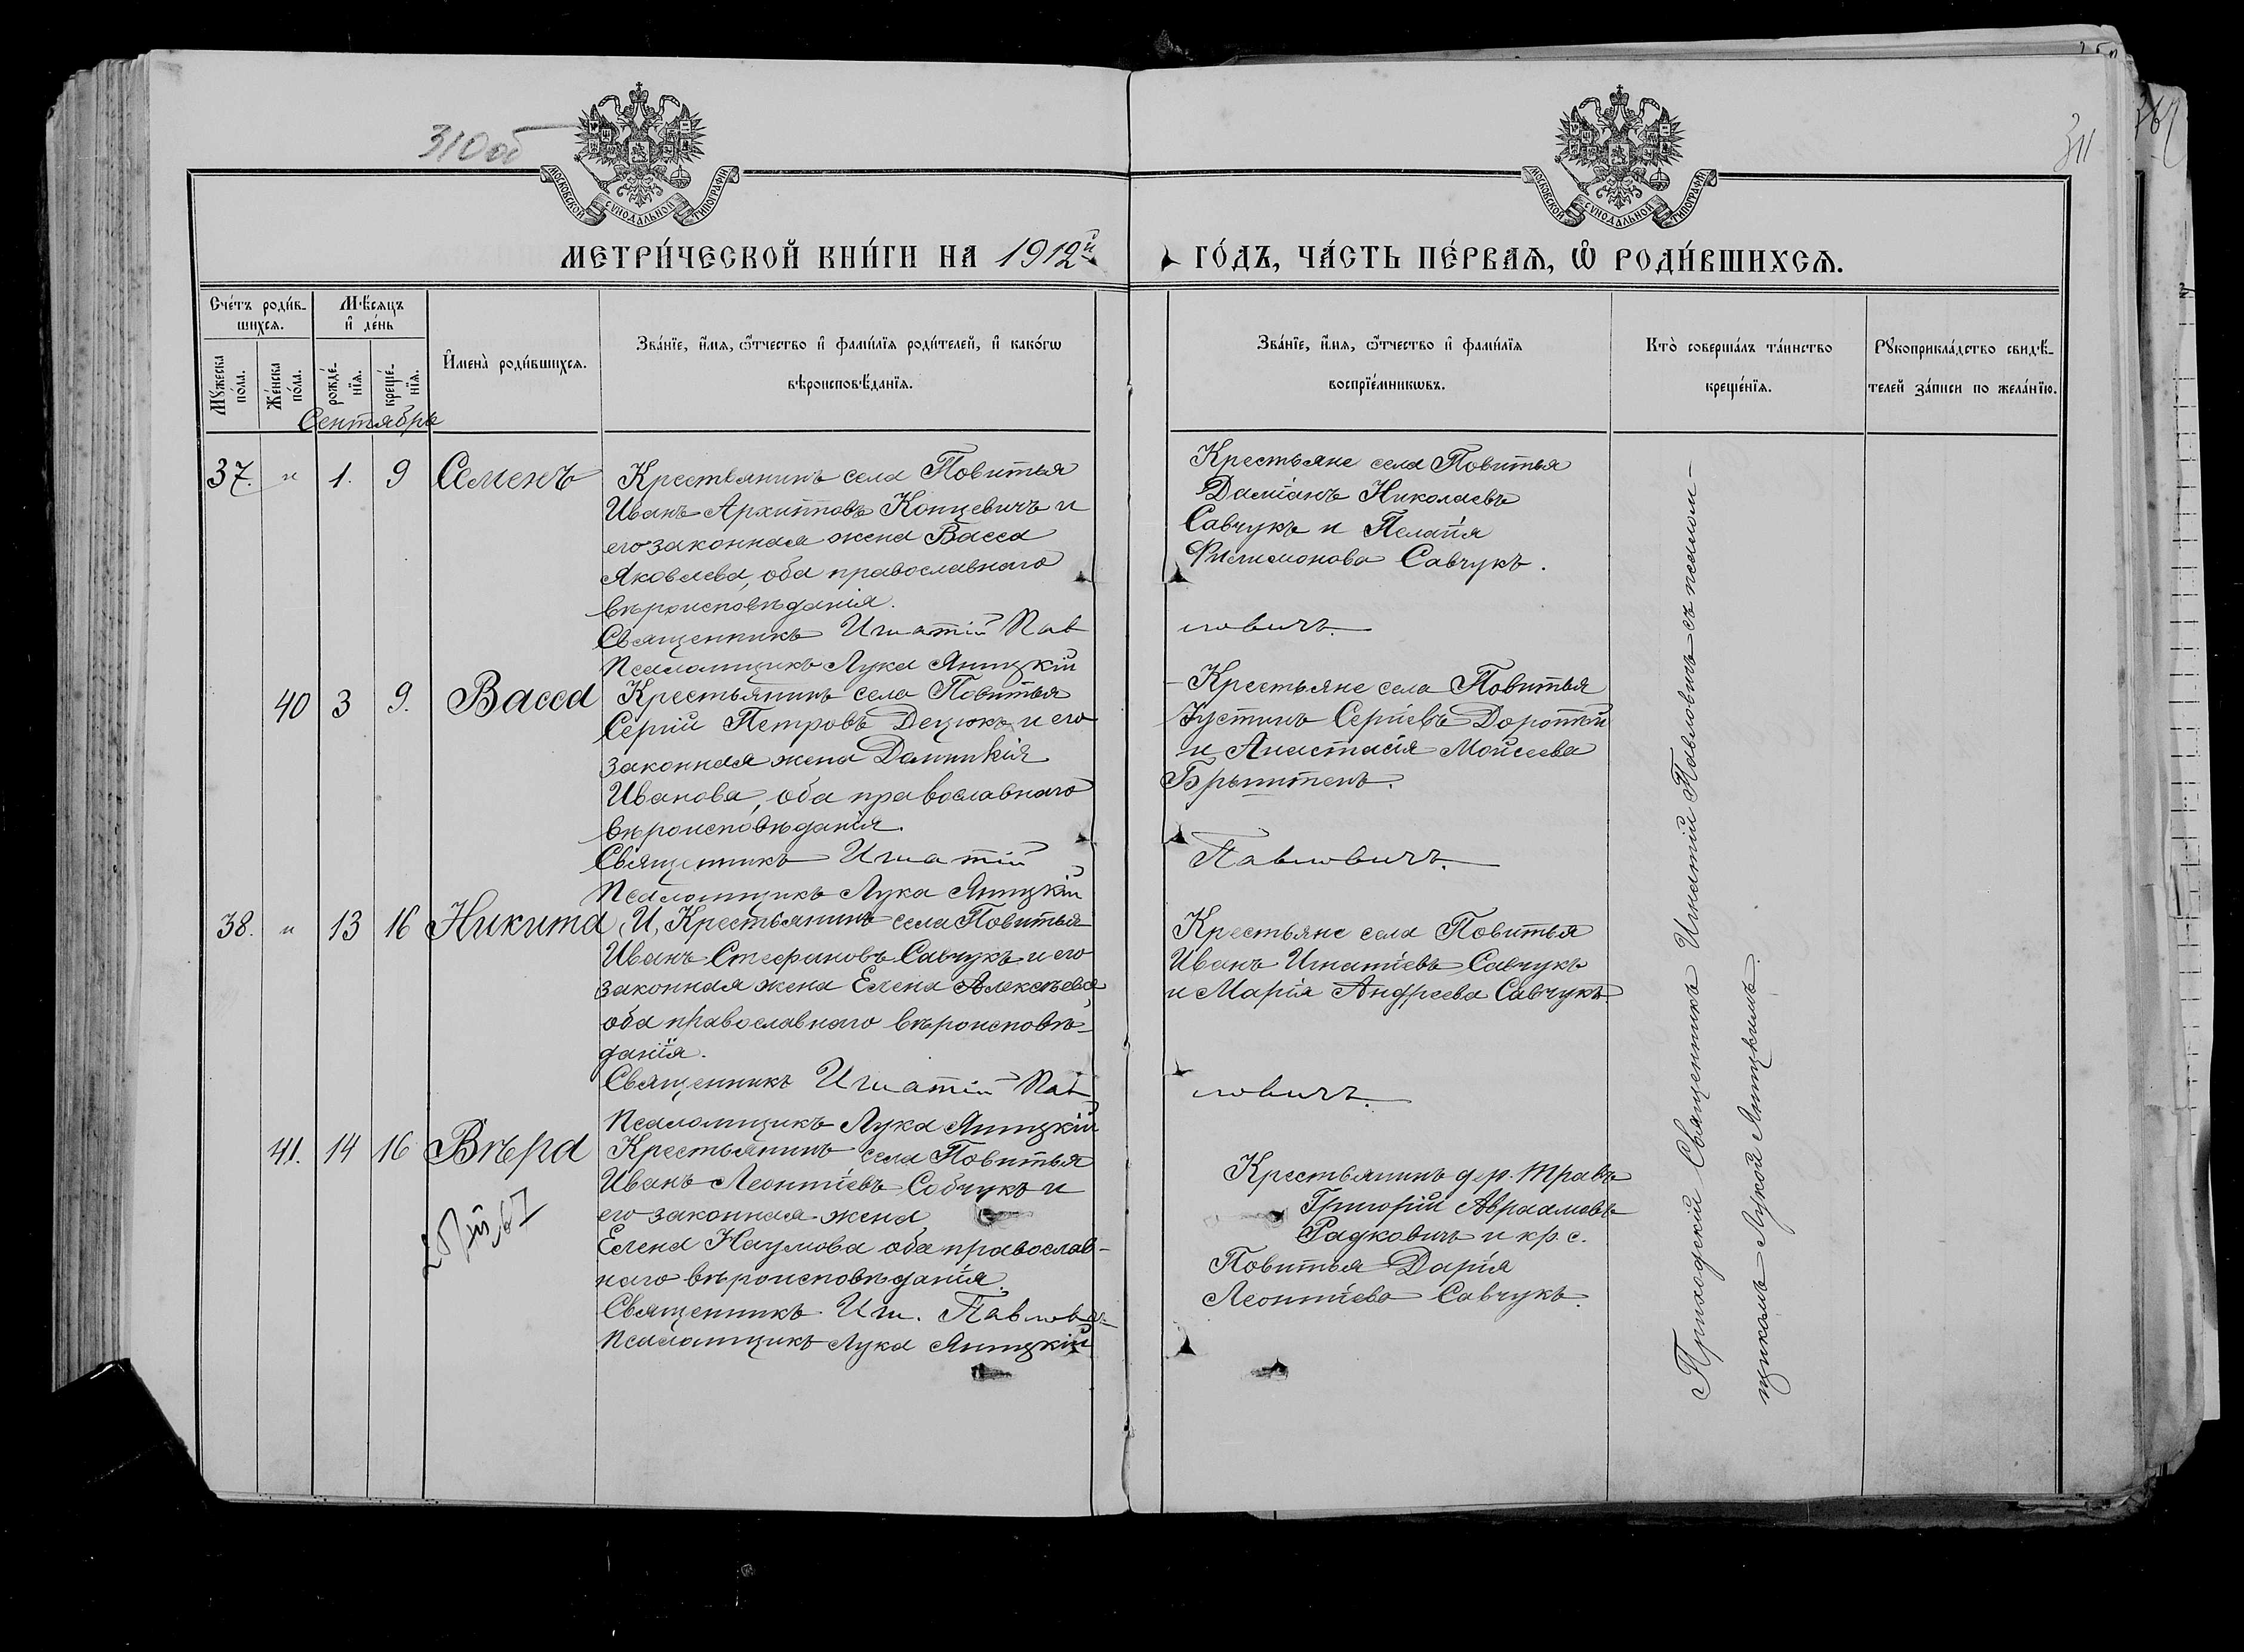 310об
311
МОСКОВСКОЙ СѴНОДАЛЬНОЙ ТИПОГРАФІИ
МОСКОВСКОЙ СѴНОДАЛЬНОЙ ТИПОГРАФІИ
МЕТРИ́ЧЕСКОЙ КНИ́ГИ НА 1912й
ГО́ДЪ, ЧА́СТЬ ПЕ́РВАѦ, Ѡ҆ РОДИ́ВШИХСѦ.
Сче́тъ роди́в-
шихсѧ.
Мѣ́сѧцъ
и҆ де́нь
Мꙋ́жеска
по́ла.
Же́нска
по́ла.
рожде́-
нїѧ.
креще́-
нїѧ.
И҆мена̀ роди́вшихсѧ.
Зва́нїе, и҆́мѧ, ѻ҆́тчество и҆ фами́лїѧ роди́телей, и҆ како́гѡ
вѣроисповѣ́данїѧ.
Зва́нїе, и҆́мѧ, ѻ҆́тчество и҆ фами́лїѧ
воспрїе́мникѡвъ.
Кто̀ соверша́лъ та́инство
креще́нїѧ.
Рꙋкоприкла́дство свидѣ́-
телей за́писи по жела́нїю.
Сентябрь
37. " 1. 9 Семенъ
Крестьянинъ села Повитья
Иванъ Архиповъ Концевичъ и
его законная жена Васса
Яковлева, оба православнаго
вѣроисповѣданія.
Священникъ Игнатій Пав
ловичъ.
Псаломщикъ Лука Яницкій
Крестьяне села Повитья
Даміанъ Николаевъ
Савчукъ и Пелагія
Филимонова Савчукъ.
40 3 9. Васса
Крестьянинъ села Повитья
Сергій Петровъ Децюкъ и его
законная жена Домникія
Иванова, оба православнаго
вѣроисповѣданія.
Священникъ Игнатій
Павловичъ.
Псаломщикъ Лука Яницкій
Крестьяне села Повитья
Іустинъ Сергіевъ Доротей
и Анастасія Моисеева
38. " 13 16 Никита
Крестьянинъ села Повитья
Иванъ Стефановъ Савчукъ и его
законная жена Елена Алексѣева
оба православнаго вѣроисповѣ-
данія.
Священникъ Игнатій Пав
ловичъ.
Псаломщикъ Лука Яницкій
Крестьяне села Повитья
Иванъ Игнатіевъ Савчукъ
и Марія Андреева Савчукъ
41. 14 16 Вѣра
Крестьянинъ села Повитья
Иванъ Леонтіевъ Собчукъ и
его законная жена
Елена Наумова оба православ-
наго вѣроисповѣданія.
Священникъ Игн. Павлов
Псаломщикъ Лука Яницкій
Крестьянинъ дер. Травъ
Григорій Авраамовъ
Радковичъ и кр. с.
Повитья Дарія
Леонтіева Савчукъ.
Приходскій Священникъ Игнатій Павловичъ съ псалом-
щикомъ Лукой Яницкимъ.